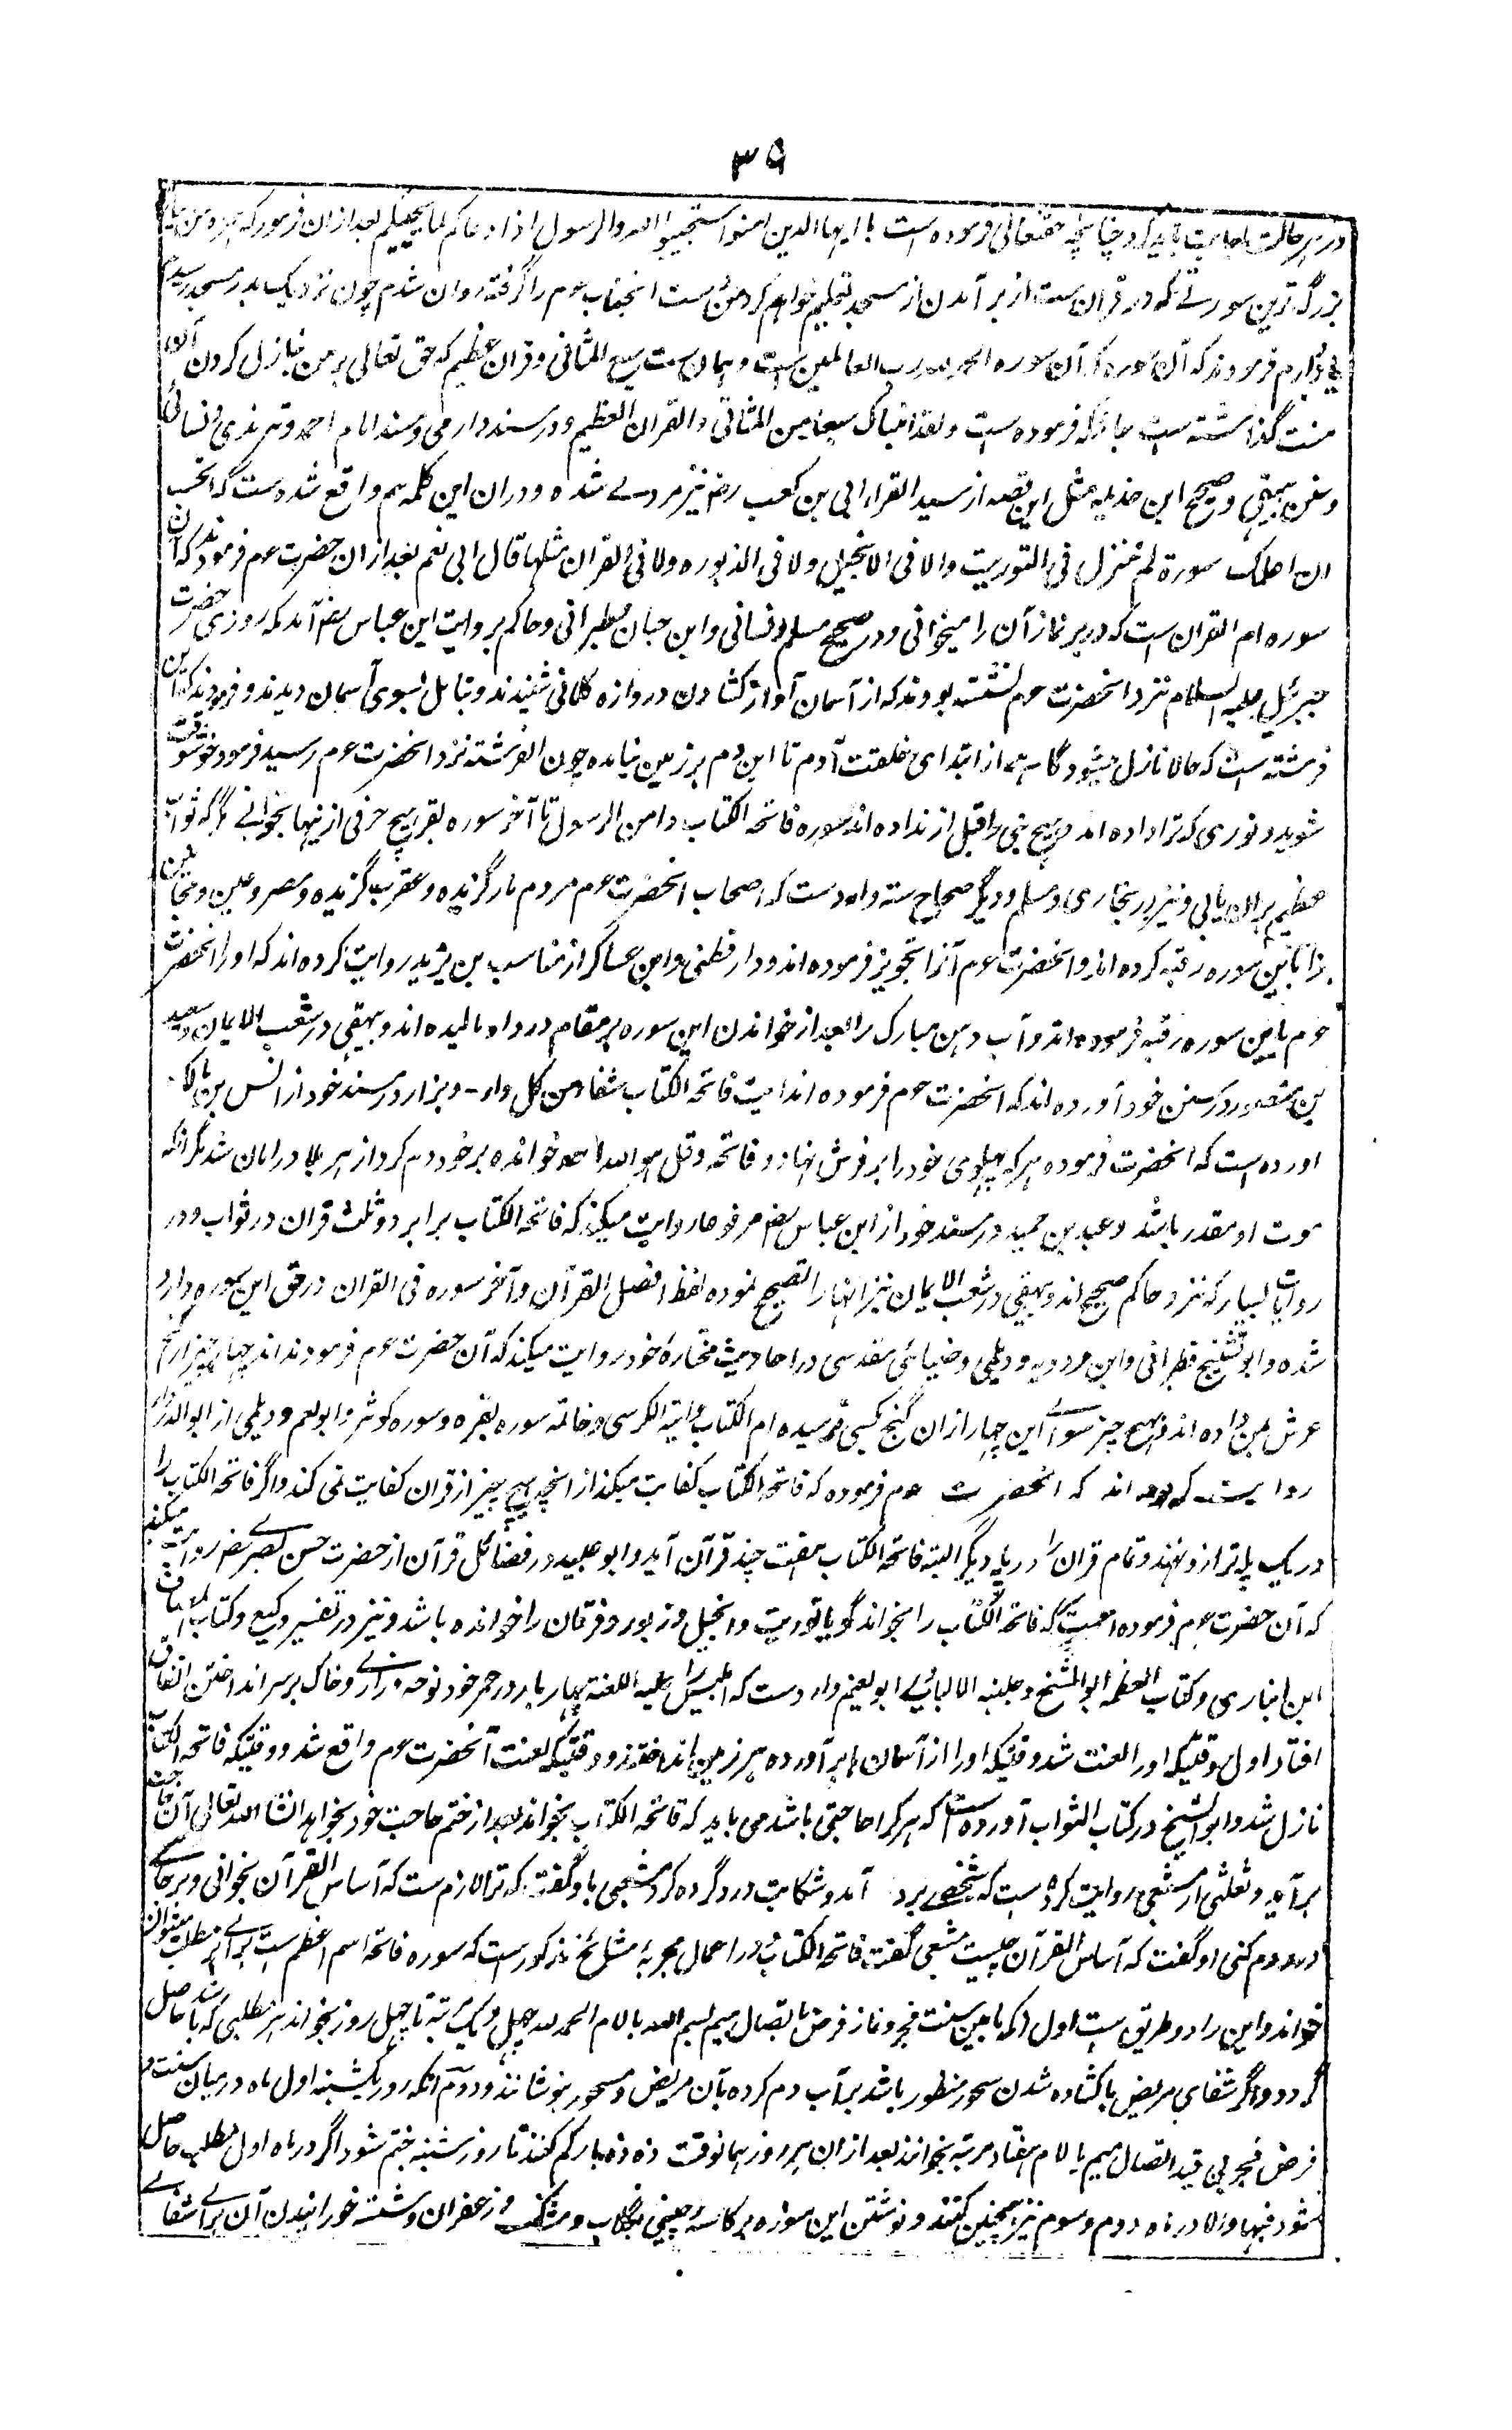 ۳۹
در هر حالت باجابت باید کرد چنانچه حقتعالی فرموده است یا ایها الذین امنوا استجیبوا لله والرسول اذا دعاکم لما یحییکم بعد ازان فرمود که
بزرگ ترین سورتے که در قران ست از بر آمدن از مسجد تعلیم خواهم کرد دست انجناب عم را گرفته روان شدم چون نزدیک بدر مسجد رسیدم
فرمودند که آن سوره الحمد لله رب العالمین ست و همان ست سبع المثانی و قران عظیم که حق تعالی بر من بنازل کردن آن
منت گذاشته است جائیکه فرموده ست ولقد اتیناک سبعا من المثانی والقران العظیم و در مسند دارمی و مسند امام احمد و ترمذی و نسائی
و سنن بیهقی و صحیح ابن خذیمه مثل این قصه از سید القراء ابی بن کعب رض نیز مروے شده و دران این کلمه هم واقع شده ست که
سورة لم تنزل فی التوریت والا فی الانجیل ولا فی الذبوره ولا فی القران مثلها قال ابی نعم بعد ازان حضرت عم فرمودند که آن
سوره ام القران ست که در هر نماز آن را میخوانی و در صحیح مسلم و نسائی و ابن حبان و طبرانی و حاکم بروایت ابن عباس رض آمد که روزی حضرت
جبرئیل علیه السلام نزد انحضرت عم نشسته بودند که از آسمان آواز کشادن دروازه کلانی شنیدند و بسوی آسمان دیدند و فرمودند که این
فرشته است که حالا نازل میشود گاهے از ابتدای خلقت آدم تا این دم بر زمین نیامده چون الفرشته نزد انحضرت عم رسید فرمود خوشوقت
شوید دو نوری که ترا داده اند و هیچ نبی را قبل از تو نداده اند سوره فاتحة الکتاب و امن الرسول تا آخر سوره بقر هیچ حرفی ازینها نخوانے مگر که ثواب
عظیم بران یابی و نیز در بخاری و مسلم و دیگر صحاح سته وارد ست که اصحاب انحضرت عم مردم مار گزیده و عقرب گزیده و مصروعین و مجانین
را باین سوره رقیه کرده اند و انحضرت عم آنرا تجویز فرموده اند و دارقطنی و ابن عساکر از سایب بن یزید روایت کرده اند که او را انحضرت
عم باین سوره رقیه فرموده اند و آب دهن مبارک را بعد از خواندن این سوره بر مقام درد او مالیده اند و بیهقی در شعب الایمان و سعید
بن منصور در سنن خود آورده اند که انحضرت عم فرموده اند فاتحة الکتاب شفاء من کل داء - و بزار در مسند خود از انس بن مالک
اورده ست که انحضرت فرموده هر که پهلوی خود را بر فرش نهاد و فاتحه و قل هو الله احد خوانده بر خود دم کرد از هر بلا در امان شد مگر آنکه
موت او مقدر باشد و عبد بن حمید در مسند خود از ابن عباس رض مرفوعا روایت میکند که فاتحة الکتاب برابر دو ثلث قران در ثواب و در
روایات بسیار که نزد حاکم صحیح اند و بیهقی در شعب الایمان نیز انها را تصحیح نموده لفظ افضل القرآن و آخر سوره فی القران در حق این سوره وارد
شده و ابو الشیخ و طبرانی و ابن مردویه و دیلمی و ضیائی مقدسی در احادیث مختاره خود روایت میکند که آن حضرت عم فرمودند چهار چیز از گنج
عرش بمن داده اند و هیچ چیز سوائے این چهار ازان گنج بکسی نرسیده ام الکتاب و ایة الکرسی و خاتمه سوره بقره و سوره کوثر و ابو نعم و دیلمی از ابو الدرداء
روایت کرده اند که انحضرت عم فرموده که فاتحة الکتاب کفایت میکند از انچه هیچ چیز از قران کفایت نمی کند و اگر فاتحة الکتاب را
در یک پله ترازو نهند و تمام قران را در پله دیگر البته فاتحة الکتاب هفت چند قرآن آید و ابو عبید در فضائل قرآن از حضرت حسن بصرے رض روایت میکند
که آن حضرت عم فرموده که فاتحة الکتاب را بخواند گویا توریت و انجیل و زبور و فرقان را خوانده باشد و نیز در تفسیر وکیع و کتاب
ابن انباری و کتاب العظمه ابو الشیخ و ابو نعیم وارد ست که ابلیس را علیه اللعنة چهار بار در عمر خود نوحه و زارے و خاک بر سر انداختن اتفاق
افتاد اول وقتیکه او را لعنت شد و قتیکه او را از آسمان بر آورده بر زمین انداختند و وقتیکه بعثت آنحضرت عم واقع شد و وقتیکه فاتحة الکتاب
نازل شد و ابو الشیخ در کتاب الثواب آورده ست که هر کرا حاجتی باشد می باید که فاتحة الکتاب بخواند بعد از ختم حاجت خود بخواهد انشاء الله تعالی آن حاجت
برآید و ثعلبی از شعبی روایت کرده ست که شخصے برو آمد و شکایت درد گرده کرد شعبی باو گفت که ترا لازم ست که آساس القرآن بخوانی و بر جائے
درد دم کنی او گفت که آساس القرآن چیست شعبی گفت فاتحة الکتاب و در اعمال مجربه مشائخ مذکور ست که سوره فاتحه اسم اعظم ست برائے هر مطلب میتوان
خواند و این را دو طریق ست اول آنکه مابین سنت فجر و نماز فرض باتصال میم بسم الله بالام الحمد لله چهل و یک مرتبه تا چهل روز بخواند هر مطلبی که باشد حاصل
گردد و اگر شفای مریض یا کشاده شدن سحر منظور باشد بر آب دم کرده بآن مریض و مسحور بنوشانند و دوم آنکه روز یکشنبه اول ماه درمیان سنت و
فرض فجر بی قید اتصال میم با لام هفتاد مرتبه بخوانند بعد ازان هر روز همانوقت ده ده بار کم کنند تا روز شنبه ختم شود اگر در ماه اول مطلب حاصل
شود فبها والا در ماه دوم و سوم نیز همچنین کنند و نوشتن این سوره بر کاسه چینی بگلاب و مشک و زعفران و شسته خورانیدن آن برائے شفائے